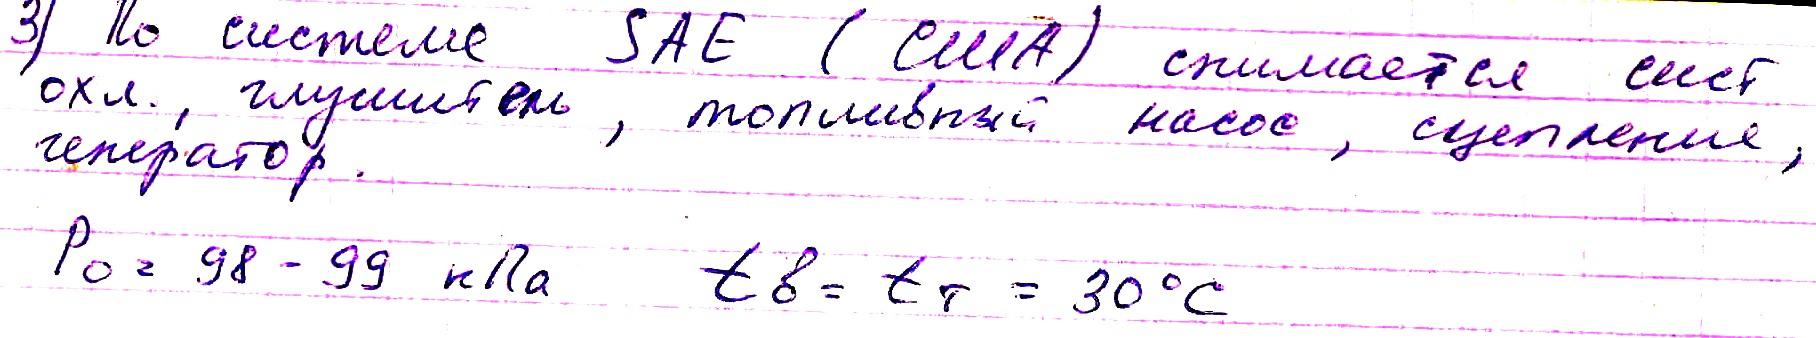 3) По системе SAE (США) снимается сист
охл., глушитель, топливный насос, сцепление,
генератор.
P₀ = 98 - 99 кПа tв = tт = 30°C